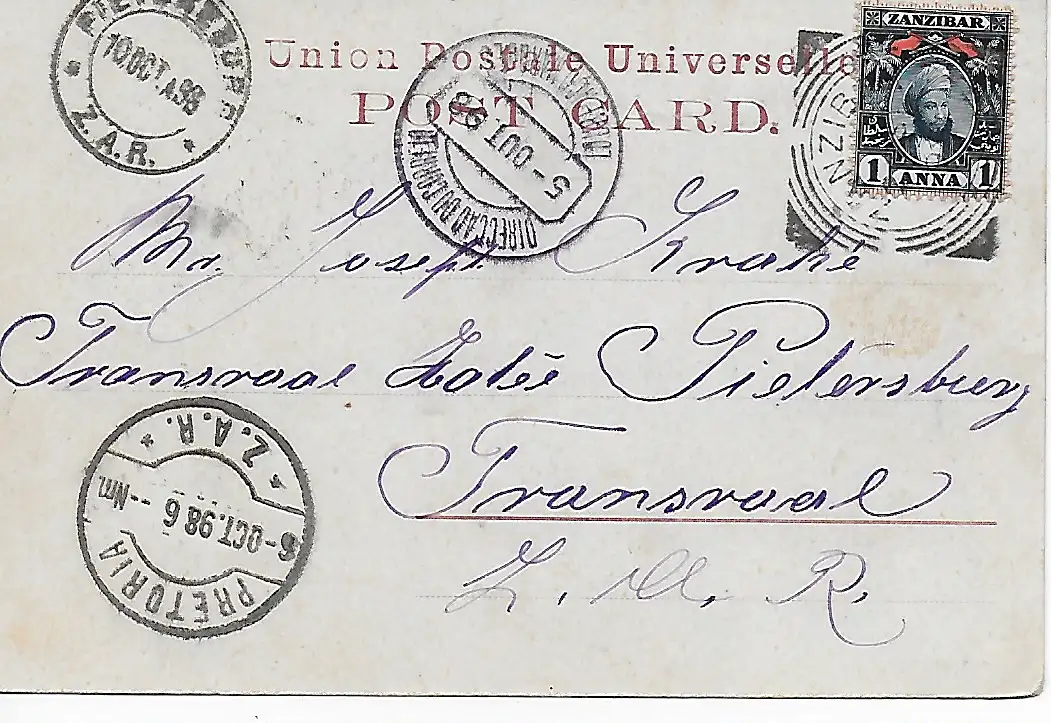 PIETERSBURG
10 OCT A98
Z.A.R.
Union Postale Universelle
POST CARD.
5 - OUT 98
ZANZIBAR
ZANZIBAR
1 ANNA 1
Mr. Joseph Krahé
Transvaal Hotel Pietersburg
Transvaal
Z. A. R.
Z.A.R.
6-OCT.98 6--Nm.
PRETORIA